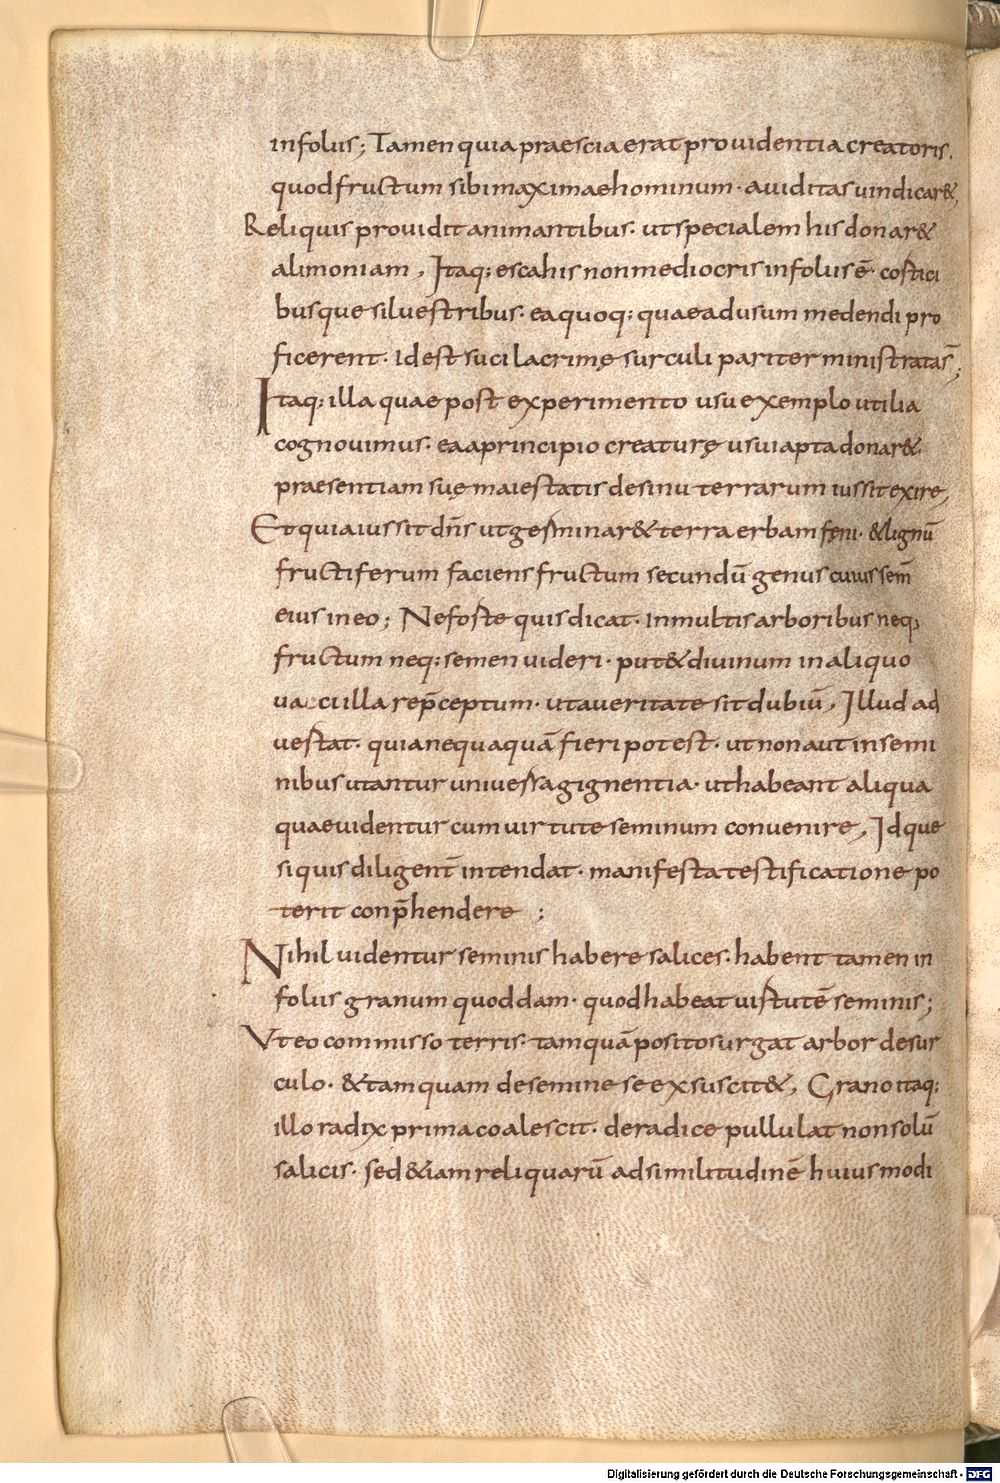 infoliis; Tamen quia praescia erat prouidentia creatoris.
quod fructum sibi maxime hominum· auiditas uindicar&,
Reliquis prouidit animantibus· ut specialem his donar&
alimoniam, Itaq; esca his non mediocris in foliis ē· cortici
busque siluestribus· ea quoq; quae ad usum medendi pro
ficerent· id est suci lacrimę surculi pariter ministratas̄;
Itaq; illa quae post experimento usu exemplo utilia
cognouimus· ea a principio creaturę usui apta donar&·
praesentiam suę maiestatis de sinu terrarum iussit exire,
Et quia iussit dn̄s ut germinar& terra erbam fęni· & lignū
fructiferum faciens fructum secundū genus cuius sem̄
eius in eo; Ne forte quis dicat· In multis arboribus neq;
fructum neq; semen uideri· put& diuinum in aliquo
uacuilla rep̄ceptum· ut a ueritate sit dubiū, Illud ad
uertat· quia nequaquā fieri potest· ut non aut in semi
nibus utantur uniuersa gignentia· ut habeant aliqua
quae uidentur cum uirtute seminum conuenire, Idque
si quis diligent̄ intendat· manifesta testificatione po
terit conp̄hendere ;
Nihil uidentur seminis habere salices· habent tamen in
foliis granum quoddam· quod habeat uirtutē seminis;
Vt eo commisso terris· tamquā posito surgat arbor de sur
culo· & tamquam de semine se exsuscit&, Grano itaq;
illo radix prima coalescit· de radice pullulat non solū
salicis· sed &iam reliquarū ad similitudinē huiusmodi
Digitalisierung gefördert durch die Deutsche Forschungsgemeinschaft - DFG